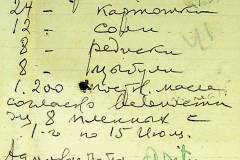 24 – " картошки
12 – " соли
8 – " редиски
8 – " цыбули
1.200 масла
согласно ведомости
на 8 пленных с
1-го по 15 Июль.